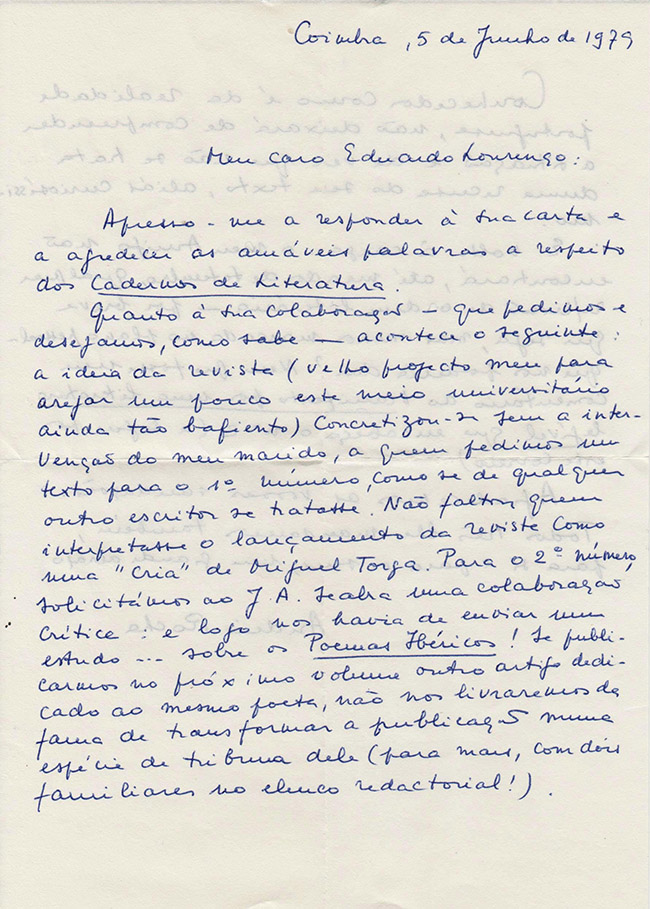 Coimbra, 5 de Junho de 1979
Meu caro Eduardo Lourenço:
Apresso-me a responder à sua carta e
a agradecer as amáveis palavras a respeito
dos Cadernos de Literatura.
Quanto à sua colaboração — que pedimos e
desejamos, como sabe — acontece o seguinte:
a ideia da revista (velho projecto meu para
arejar um pouco este meio universitário
ainda tão bafiento) concretizou-se sem a inter-
venção do meu marido, a quem pedimos um
texto para o 1º número, como se de qualquer
outro escritor se tratasse. Não faltou quem
interpretasse o lançamento da revista como
uma "cria" de Miguel Torga. Para o 2º número,
solicitámos ao J. A. Seabra uma colaboração
crítica: e logo nos havia de enviar um
estudo... sobre os Poemas Ibéricos! Se publi-
carmos no próximo volume outro artigo dedi-
cado ao mesmo poeta, não nos livraremos da
fama de transformar a publicação numa
espécie de tribuna dele (para mais, com dois
familiares no elenco redactorial!).